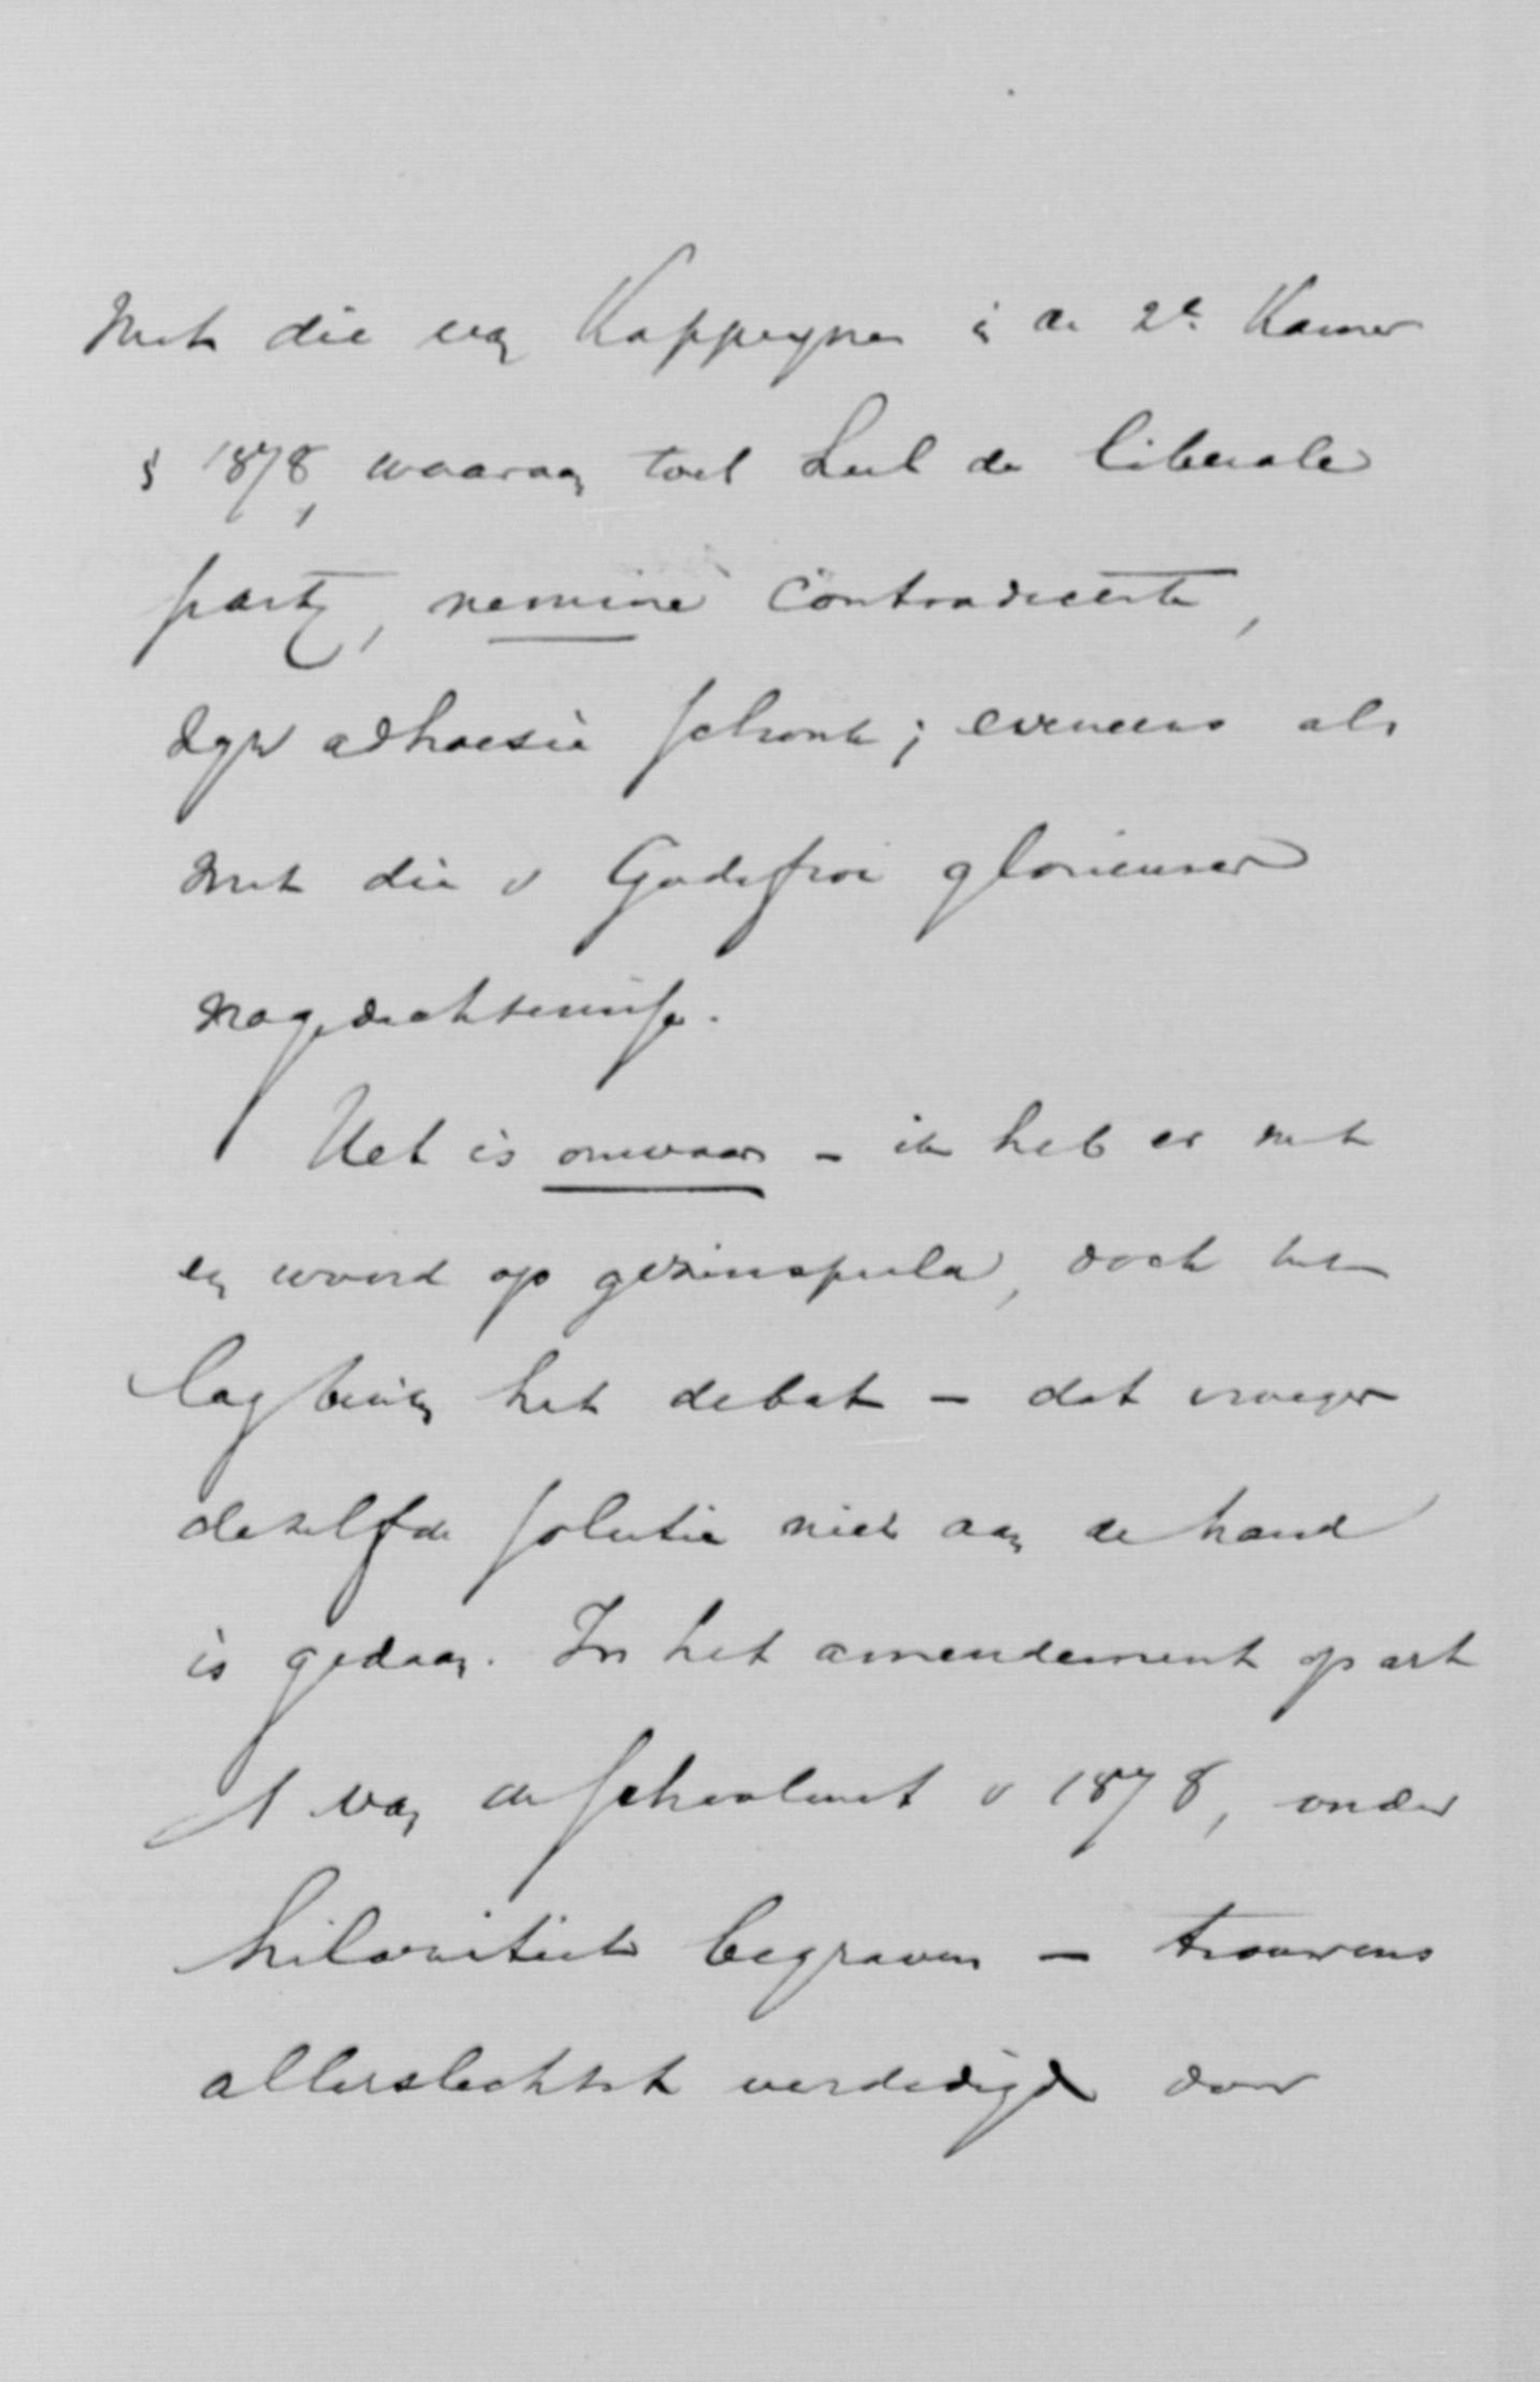 met die van Kappeyne in de 2e Kamer
§ 1878, waaraan toen heel de liberale
partij, nemine contradicente,
zijn adhaesie schonk; eveneens als
met die v Godefroi glorieuser
nagedachtenisse.
Het is onwaar - ik heb er met
een woord op gezinspeeld, doch het
lag buiten het debat - dat vroeger
dezelfde solutie niet aan de hand
is gedaan. In het amendement op art
1 van de schoolwet v 1878, onder
hilariteit begraven - trouwens
allerslechtst verdedigd door